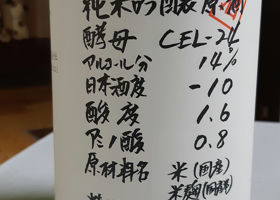 純米吟醸原酒
酵母 CEL-24
アルコール分 14%
日本酒度 -10
酸度 1.6
アミノ酸 0.8
原材料名 米(国産)
米麹(国産)